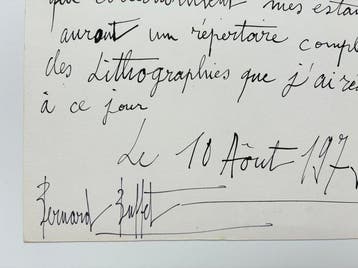 que concernent mes esta
auront un répertoire compl
des Lithographies que j'ai re
à ce jour
Le 10 Août 197
Bernard Buffet